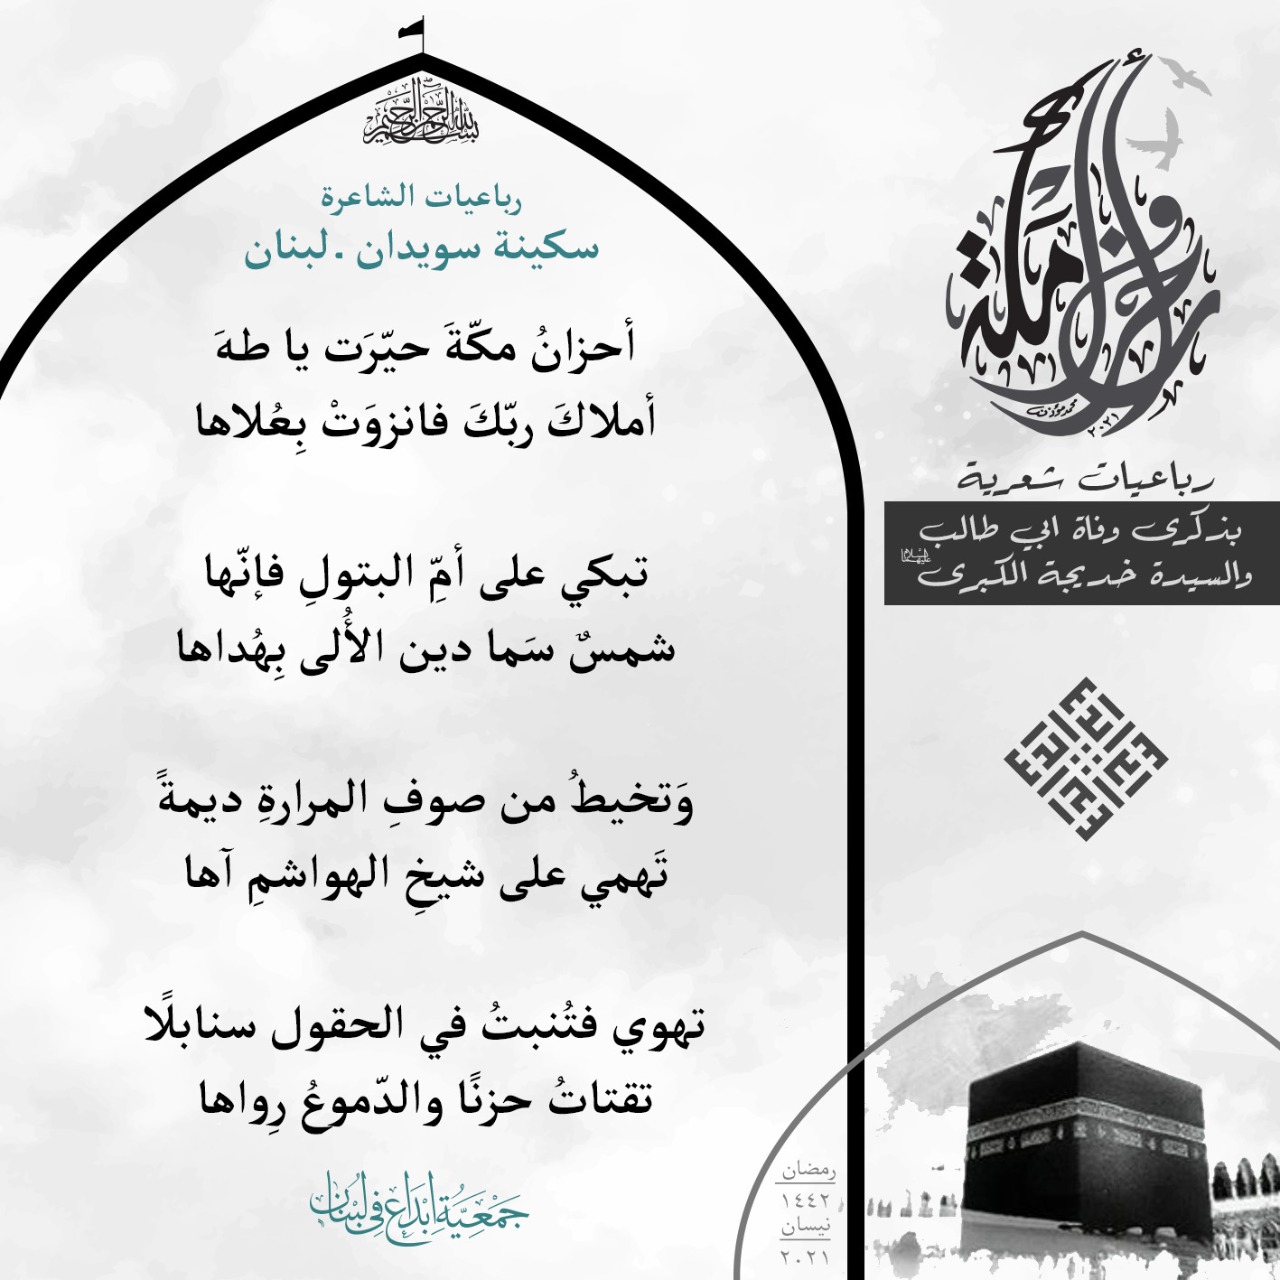 بسم الله الرحمن الرحيم
رباعيات الشاعرة
سكينة سويدان ـ لبنان
أحزانُ مكّةَ حيّرَت يا طهَ
أملاكَ ربّكَ فانزوَتْ بِعُلاها
تبكي على أمِّ البتولِ فإنّها
شمسٌ سَما دين الأُلى بِهُداها
وَتخيطُ من صوفِ المرارةِ ديمةً
تَهمي على شيخِ الهواشمِ آها
تهوي فتُنبتُ في الحقول سنابلًا
تقتاتُ حزنًا والدّموعُ رِواها
جَمْعِيَّةُ إِبْدَاعْ فِي لُبْنَان
محمد مؤذن
٢٠٢١
رباعيات شعرية
بذكرى وفاة ابي طالب
والسيدة خديجة الكبرى عليهما السلام
رمضان
١٤٤٢
نيسان
٢٠٢١